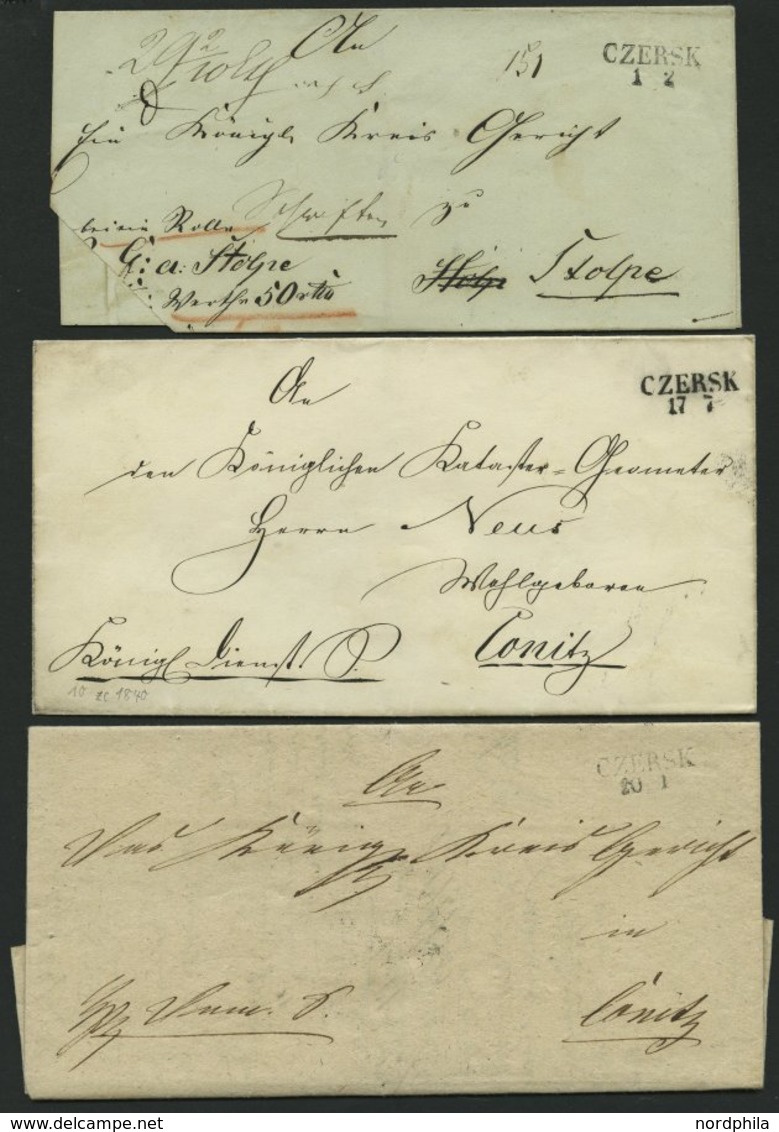 An
151
CZERSK
1 2
Ein Königl Kreis Gericht
beiein Rolle Schriften zu
G: a: Stolpe
Stolp Stolpe
Werth 50 rtlr
An
CZERSK
17 7
den Königlichen Kataster=Geometer
Herrn Neus
Wohlgeboren
Königl Dienst S. Conitz
10 zc 1840
An
CZERSK
20 1
Das Königl Kreis Gericht
in
Conitz
www.delcampe.net
nordphila